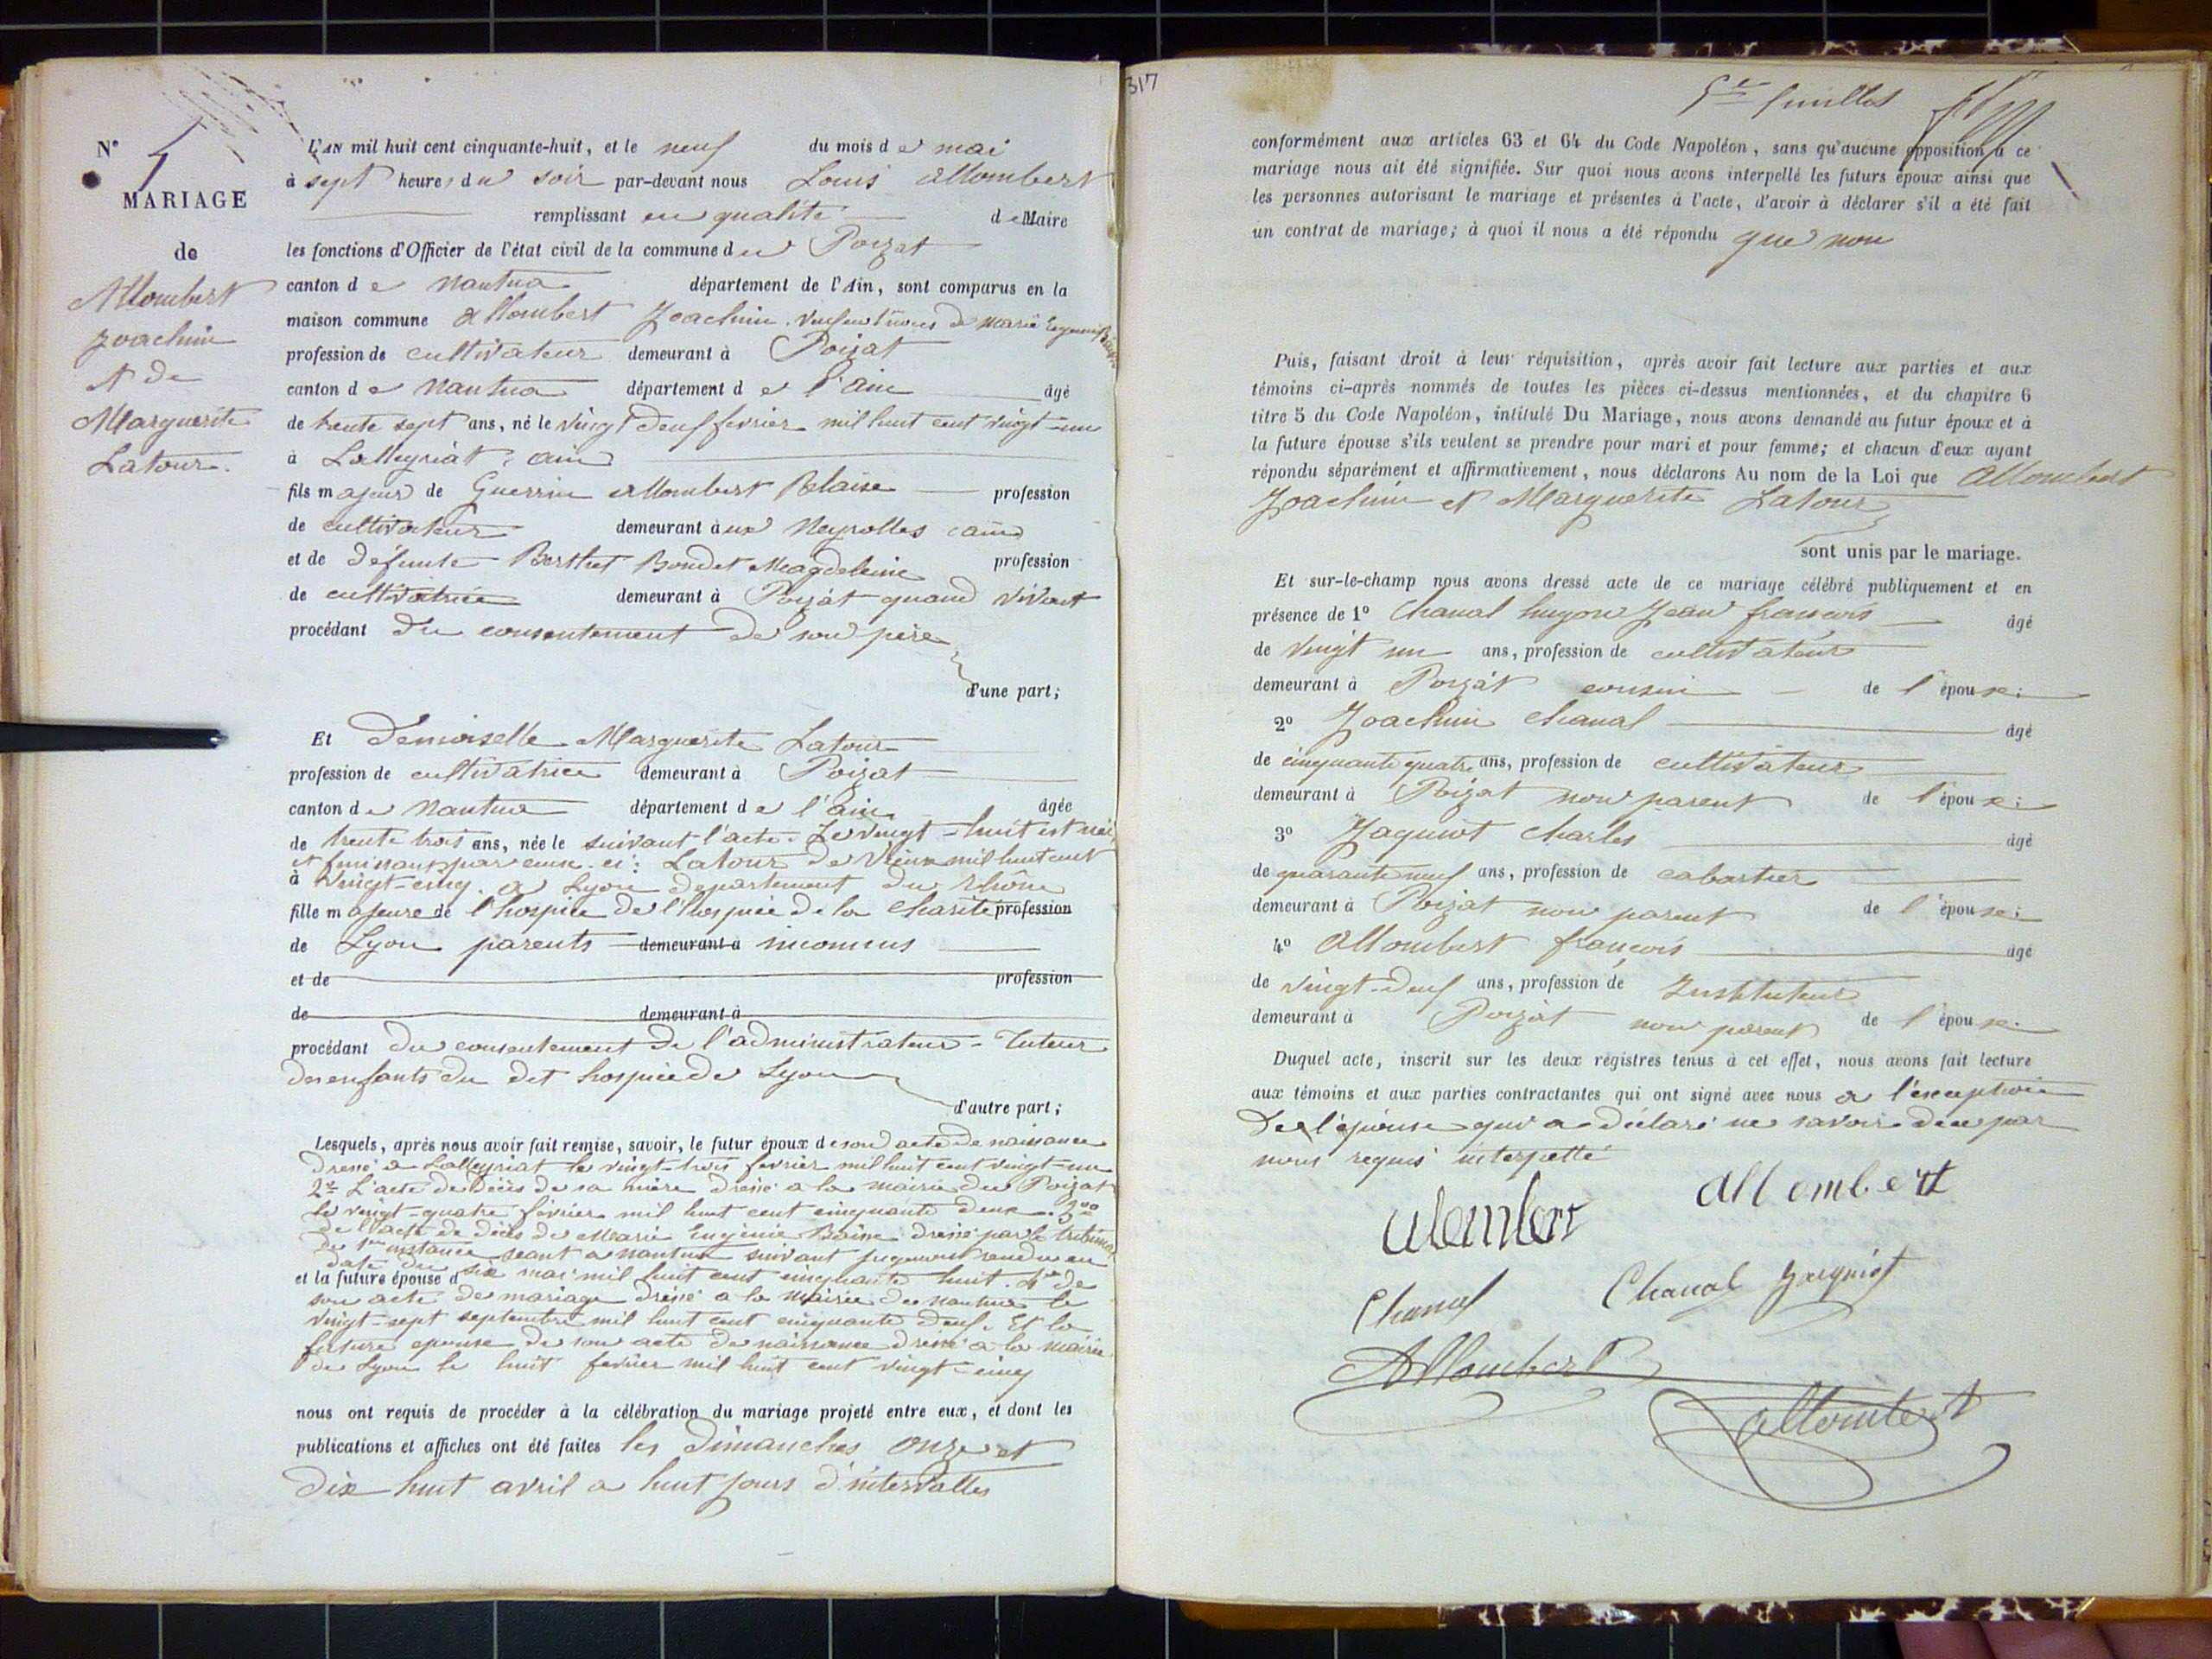 N° 1
MARIAGE
de
Allombert
Joachim
et de
Marguerite
Latour.
L'AN mil huit cent cinquante-huit, et le neuf du mois de mai
à sept heures du soir par-devant nous Louis Allombert
remplissant en qualité de Maire
les fonctions d'Officier de l'état civil de la commune du Poizat
canton de Nantua département de l'Ain, sont comparus en la
maison commune Allombert Joachim. Veuf en 1res noces de Marie Eugenie Baise
profession de cultivateur demeurant à Poizat
canton de Nantua département de l'ain âgé
de trente sept ans, né le vingt deux fevrier mil huit cent vingt-un
à Lalleyriat, ain
fils majeur de Guerrin Allombert Blaise profession
de cultivateur demeurant aux Neyrolles (ain)
et de défunte Berthet Bondet Magdeleine profession
de cultivatrice demeurant à Poizat quand vivait
procédant du consentement de son père
d'une part;
Et Demoiselle Marguerite Latour
profession de cultivatrice demeurant à Poizat
canton de Nantua département de l'ain agée
de trente trois ans, née le suivant l'acte. Le vingt-huit est
et finissant par ceux-ci: Latour de mil huit cent
à vingt-cinq. a Lyon departement du rhône
fille majeure de l'hospice de l'hospice de la charité profession
de Lyon parents demeurant à inconnus
et de profession
de demeurant à
procédant du consentement de l'administrateur-Tuteur
des enfants du dit hospice de Lyon
d'autre part;
Lesquels, après nous avoir fait remise, savoir, le futur époux de son acte de naissance
dressé a Lalleyriat le vingt-trois fevrier mil huit cent vingt-un
2e L'acte de décès de sa mère dressé a la mairie du Poizat
le vingt-quatre fevrier mil huit cent cinquante deux. 3°
de l'acte de décès de Marie Eugènie Baise dressé par le tribunal
de 1ère instance séant a nantua suivant jugement rendu en
date du six mai mil huit cent cinquante huit. 4° de
et la future épouse d
son acte de mariage dressé a la Mairie de Nantua le
vingt-sept septembre mil huit cent cinquante deux. Et la
future epouse de son acte de naissance dressé a la mairie
de Lyon le huit fevrier mil huit cent vingt-cinq
nous ont requis de procéder à la célébration du mariage projeté entre eux, et dont les
publications et affiches ont été faites les Dimanches onze et
dix huit avril a huit jours d'intervalles
317
5e feuillet
conformément aux articles 63 et 64 du Code Napoléon, sans qu'aucune opposition à ce
mariage nous ait été signifiée. Sur quoi nous avons interpellé les futurs époux ainsi que
les personnes autorisant le mariage et présentes à l'acte, d'avoir à déclarer s'il a été fait
un contrat de mariage; à quoi il nous a été répondu que non
Puis, faisant droit à leur réquisition, après avoir fait lecture aux parties et aux
témoins ci-après nommés de toutes les pièces ci-dessus mentionnées, et du chapitre 6
titre 5 du Code Napoléon, intitulé Du Mariage, nous avons demandé au futur époux et à
la future épouse s'ils veulent se prendre pour mari et pour femme; et chacun d'eux ayant
répondu séparément et affirmativement, nous déclarons Au nom de la Loi que Allombert
Joachim et Marguerite Latour
sont unis par le mariage.
Et sur-le-champ nous avons dressé acte de ce mariage célébré publiquement et en
présence de 1° Chanal hugon Jean françois âgé
de vingt un ans, profession de cultivateur
demeurant à Poizat cousin de l'épouse;
2° Joachim Chanal âgé
de cinquante quatre ans, profession de cultivateur
demeurant à Poizat non parent de l'épouse;
3° Jaquiot Charles âgé
de quarante neuf ans, profession de cabartier
demeurant à Poizat non parent de l'épouse;
4° Allombert françois âgé
de vingt-deux ans, profession de Instituteur
demeurant à Poizat non parent de l'épouse.
Duquel acte, inscrit sur les deux régistres tenus à cet effet, nous avons fait lecture
aux témoins et aux parties contractantes qui ont signé avec nous a l'exception
De l'épouse qui a déclaré ne savoir de ce par
nous requis interpellé
alembert allembert
Chanal Chanal Jaquiot
Allombert
allombert